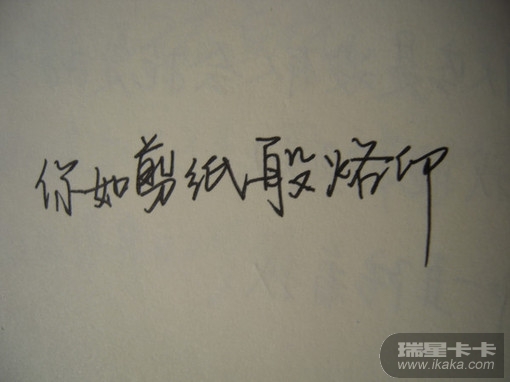 你如剪纸般烙印
瑞星卡卡
www.ikaka.com